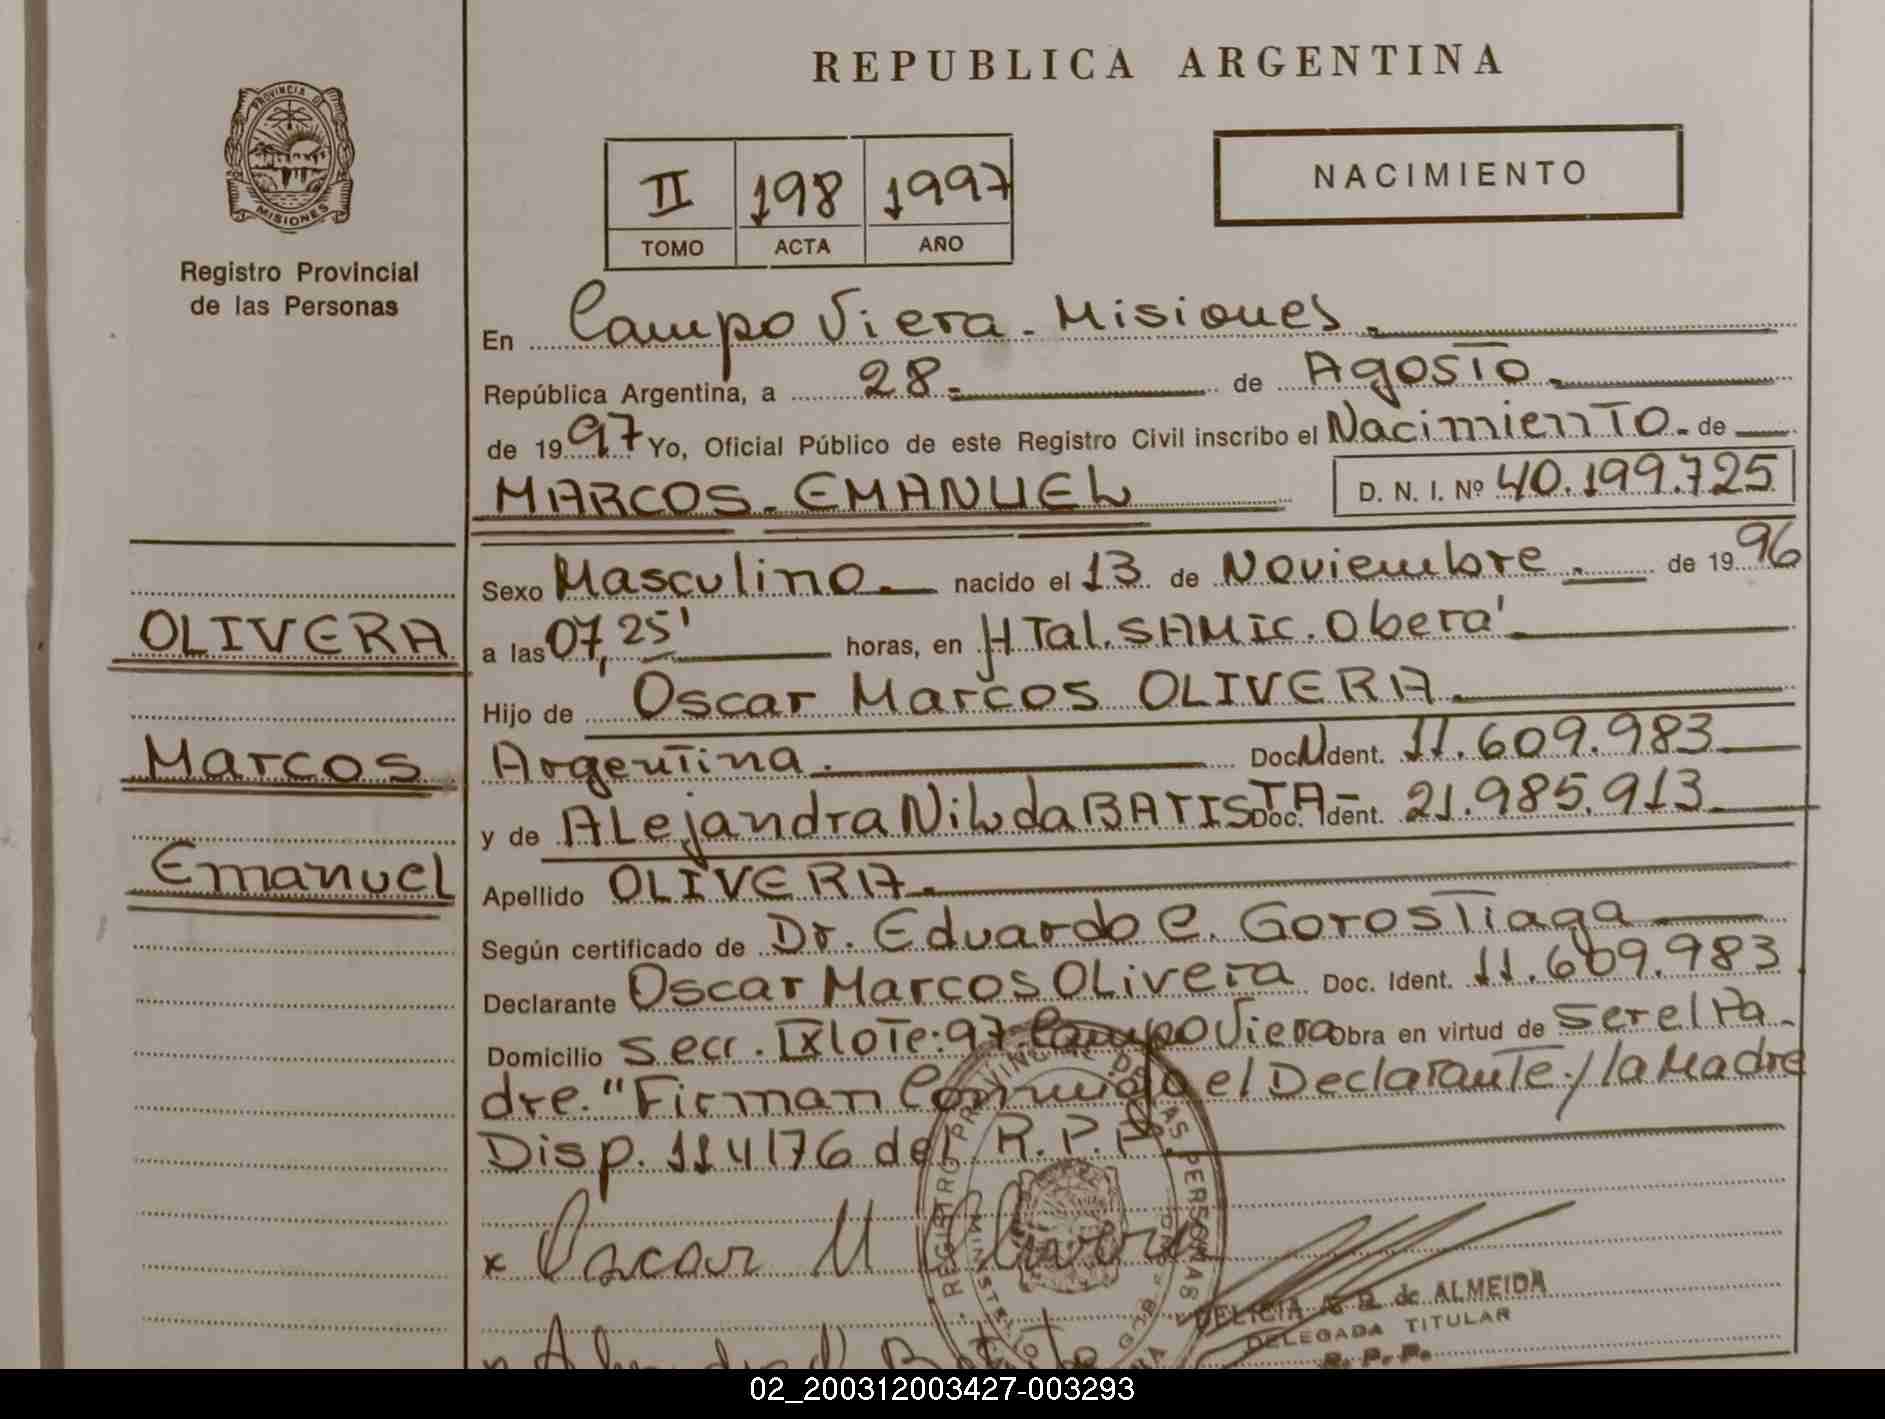 REPUBLICA ARGENTINA
PROVINCIA DE
MISIONES
Registro Provincial
de las Personas
II 198 1997
TOMO ACTA AÑO
NACIMIENTO
En Campo Viera - Misiones.
República Argentina, a 28 - de Agosto -
de 1997 Yo, Oficial Público de este Registro Civil inscribo el Nacimiento - de
MARCOS - EMANUEL D. N. I. Nº 40.199.725
Sexo Masculino - nacido el 13 de Noviembre - de 1996
OLIVERA
a las 07,25' horas, en HTal. SAMIC. Oberá
Hijo de Oscar Marcos OLIVERA -
Marcos
Argentina. Doc. Ident. 11.609.983
y de ALejandra Nilda BATISTA - Doc. Ident. 21.985.913
Emanuel
Apellido OLIVERA -
Según certificado de Dr. Eduardo C. Gorostiaga
Declarante Oscar Marcos OLivera Doc. Ident. 11.609.983
Domicilio Secc. IX lote: 97. Campo Viera Obra en virtud de ser el Pa-
dre. "Firman Conmigo el Declarante y la Madre
Disp. 114176 del R.P.P.
REGISTRO PROVINCIAL DE LAS PERSONAS
x Oscar M Olivera
DELICIA de ALMEIDA
DELEGADA TITULAR
R. P. P.
02_200312003427-003293